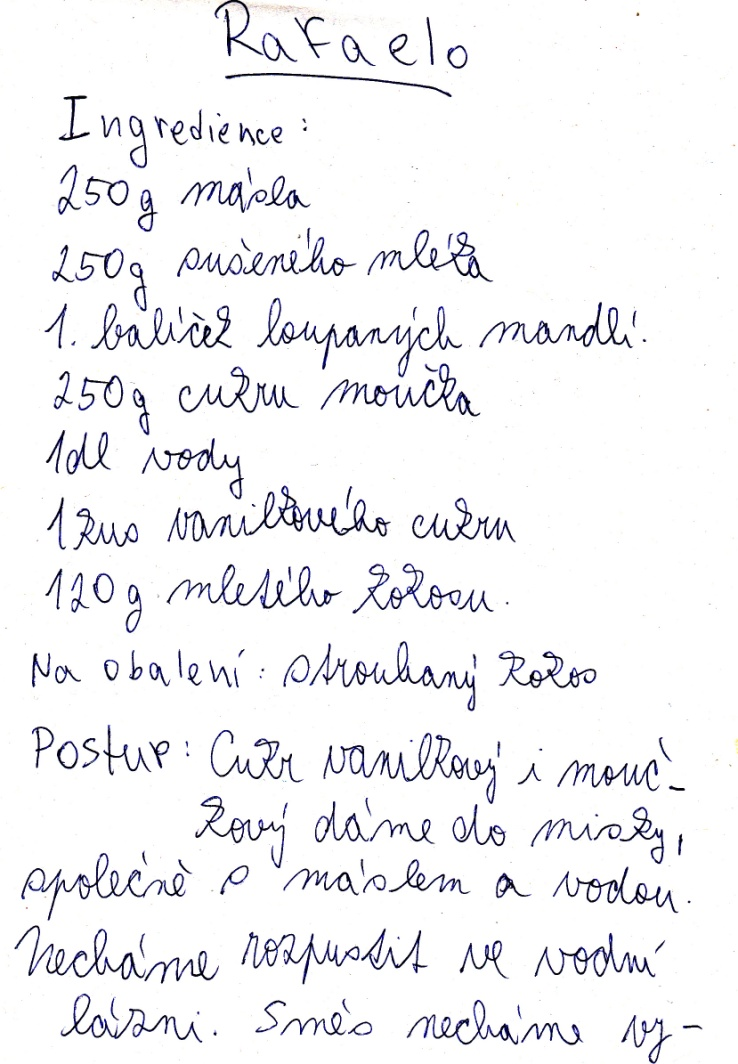 Rafaelo
Ingredience:
250g másla
250g sušeného mléka
1. balíček loupaných mandlí.
250g cukru moučka
1dl vody
1 kus vanilkového cukru
120g mletého kokosu.
Na obalení: strouhaný kokos
Postup: Cukr vanilkový i mouč-
kový dáme do misky,
společně s máslem a vodou.
Necháme rozpustit ve vodní
lázni. Směs necháme vy-